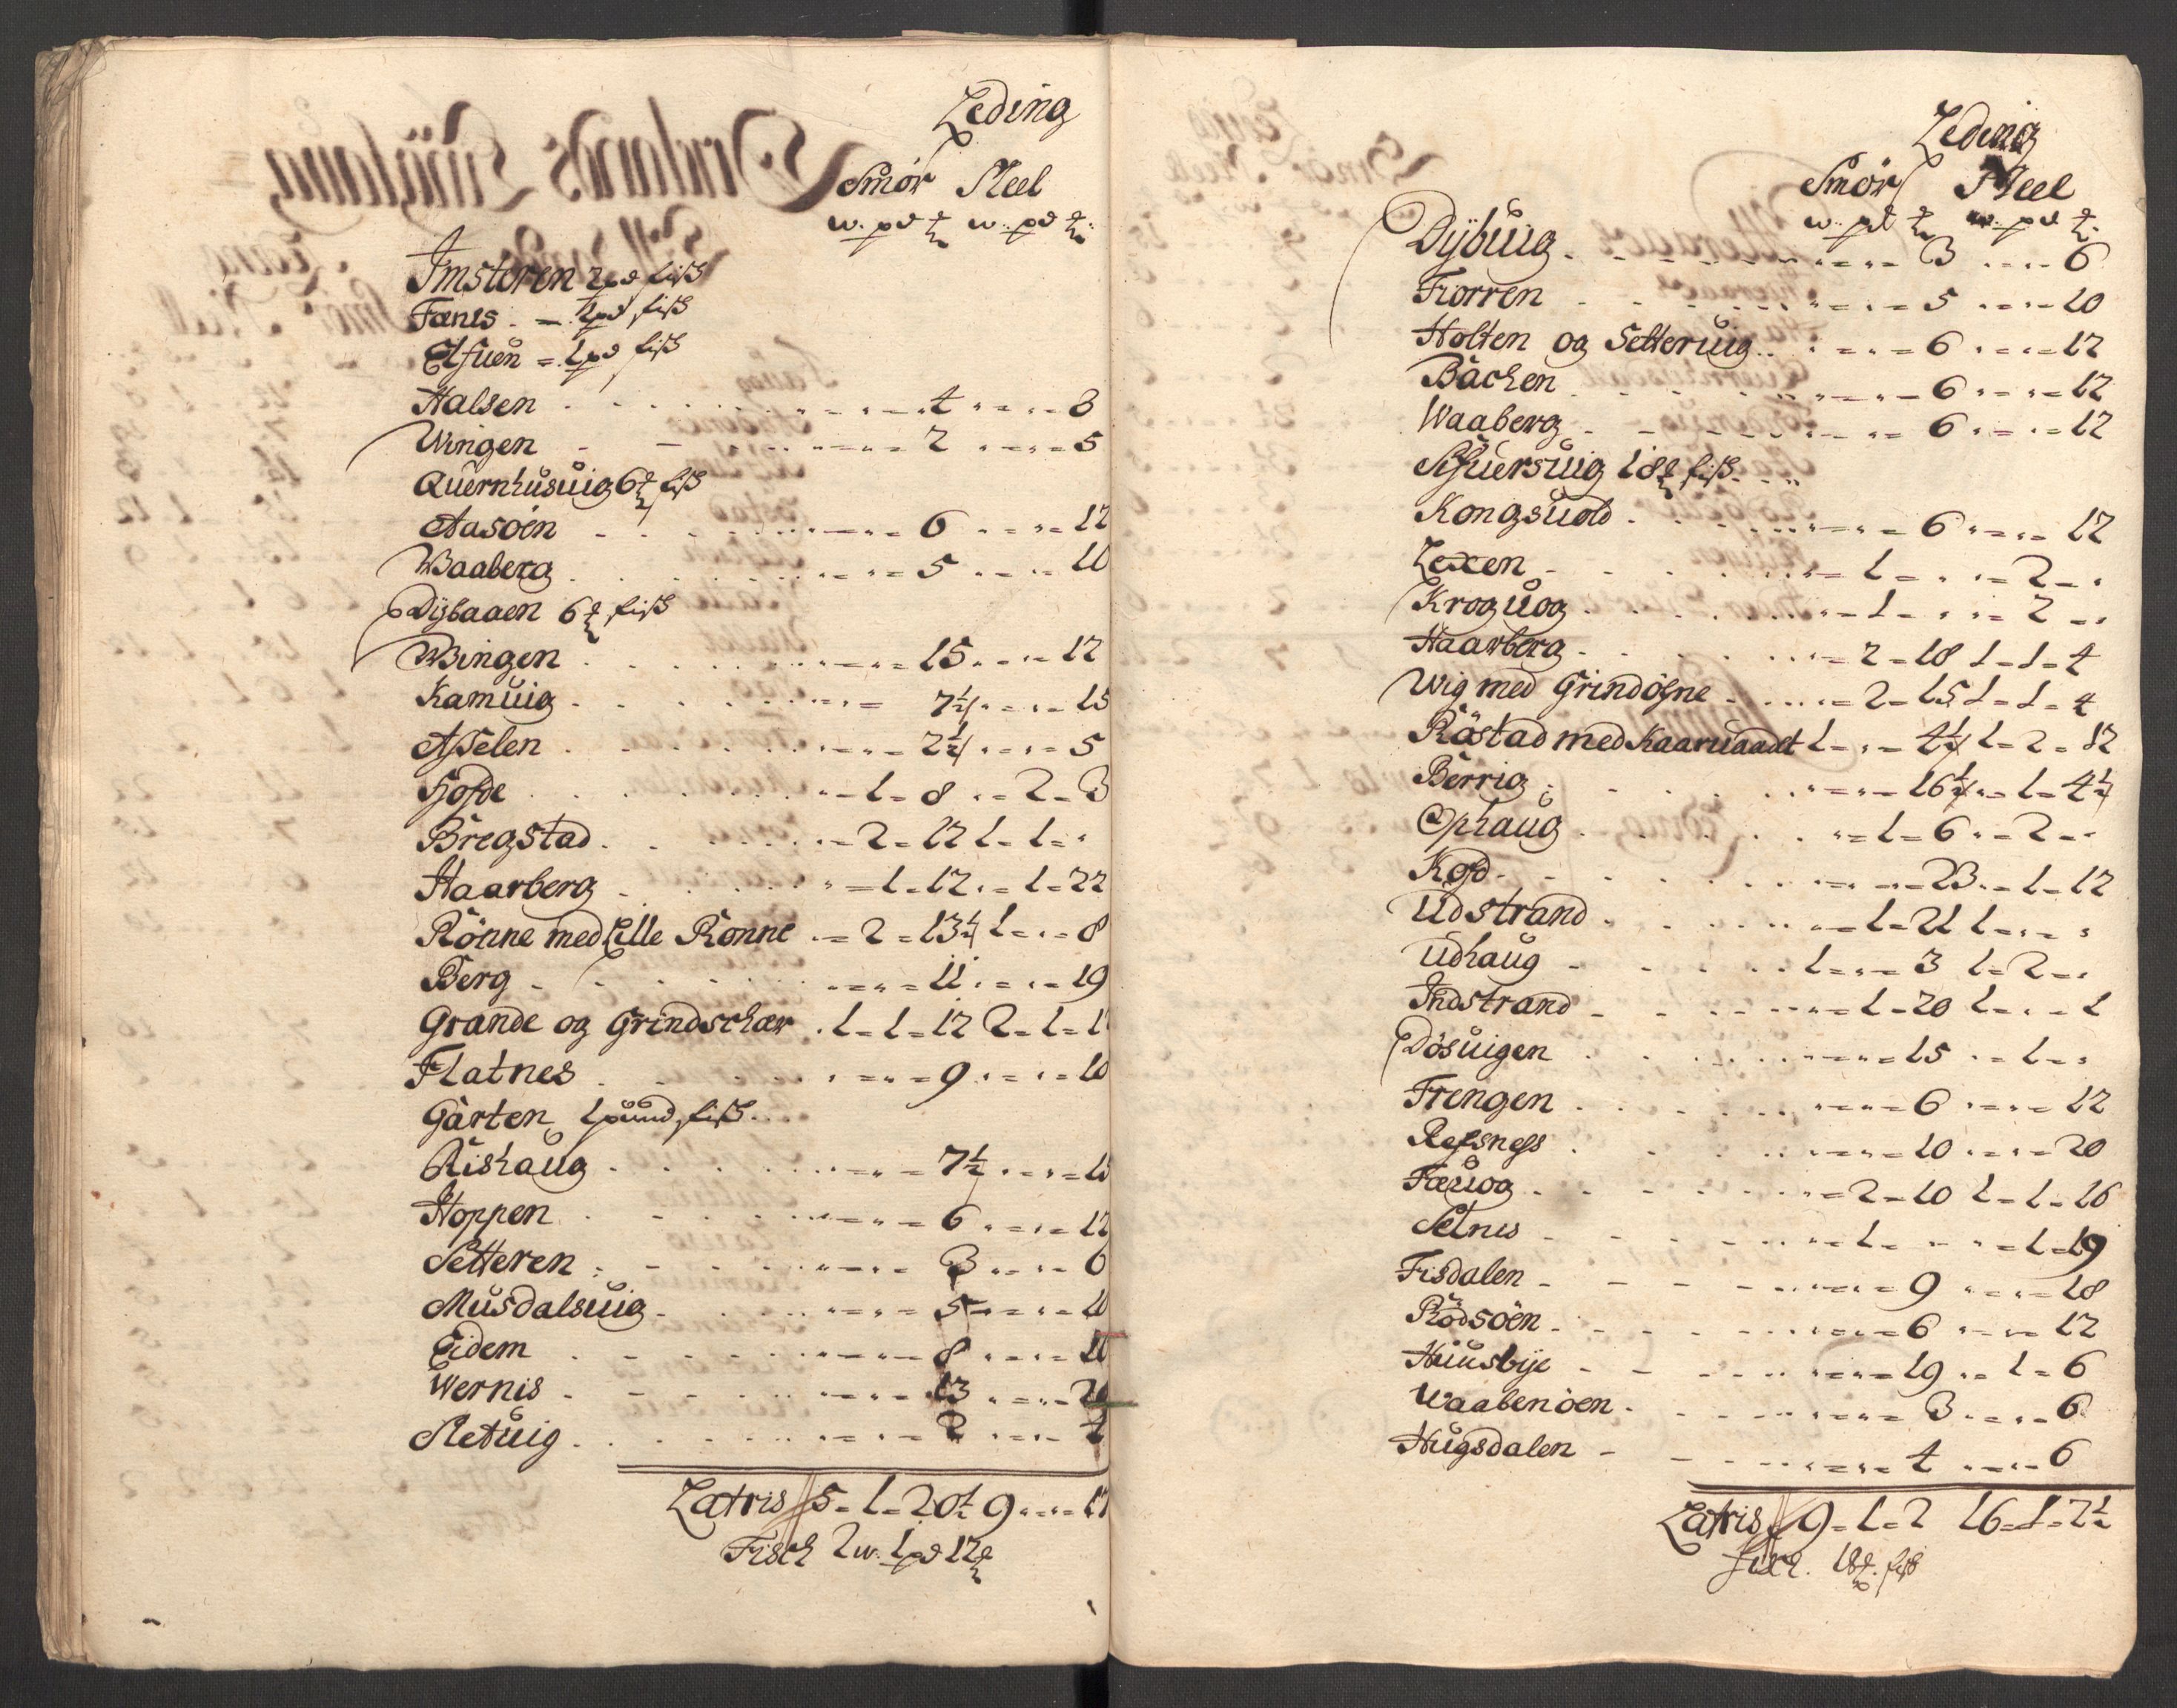 Leding
Smör Meel
w. pd ℔ w. pd ℔
Imsteren 2 pd fisß
Fænes - 1 pd fisß
Elfuen = 1 pd fisß
Halsen 4 8
Wingen 2 5
Quernhusuig 6 ℔ fisß
Aasöen 6 12
Waaberg 5 10
Dÿbaaen 6 ℔ fisß
Wingen 15 17
Kamuig 7½ 15
Asselen 2½ 5
Hofde 1 = 8 2 = 3
Bregstad 2 = 12 1 = 1 =
Haarberg 1 = 12 1 = 22
Rönne med Lille Rönne 2 = 13½ 1 = 8
Berg 11 19
Grande og Grindschær 1 = 1 = 12 2 = 1 = 1
Flatnes 9 10
Gärten 1 pund fisß
Rishaug 7½ 15
Hoppen 6 12
Setteren 3 6
Musdalsuig 5 10
Eidem 8 10
Wernis 13 20
Sletuig 2 4
Latris 5 = 1 = 20½ 9 17
Fisch 2 w. 1 pd 12 ℔
Leding
Smör Meel
w. pd ℔ w. pd ℔
Dÿbuig 3 6
Fiorren 5 10
Holten og Setteruig 6 12
Bächen 6 12
Waaberg 6 12
Sifuersuig 18 ℔ fisß
Kongsuold 6 12
Lexen 1 = 2 =
Kroguog 1 = 2 =
Haarberg 2 = 18 1 = 1 = 4
Wig med Grindöfne 2 = 15 1 = 1 = 4
Råstad med Kaaruaadt 1 = 4½ 1 = 2 = 12
Berrig 16½ 1 = 4½
Ophaug 1 = 6 2 =
Kofd 23 1 = 12
Udstrand 1 = 21 1 =
Udhaug 1 = 3 1 = 2 =
Indstrand 1 = 20 1 = 1
Dösuigen 15 1 =
Frengen 6 12
Refsness 10 20
Fæuog 2 = 10 1 = 1 = 16
Selnis 1 = 1 = 19
Fisdalen 9 18
Rödsöen 6 12
Huusbÿe 19 1 = 6
Waabenöen 3 6
Hugsdalen 4 6
Latris 9 = 1 = 2 16 = 1 = 2½
fisch. 18 ℔. fisß